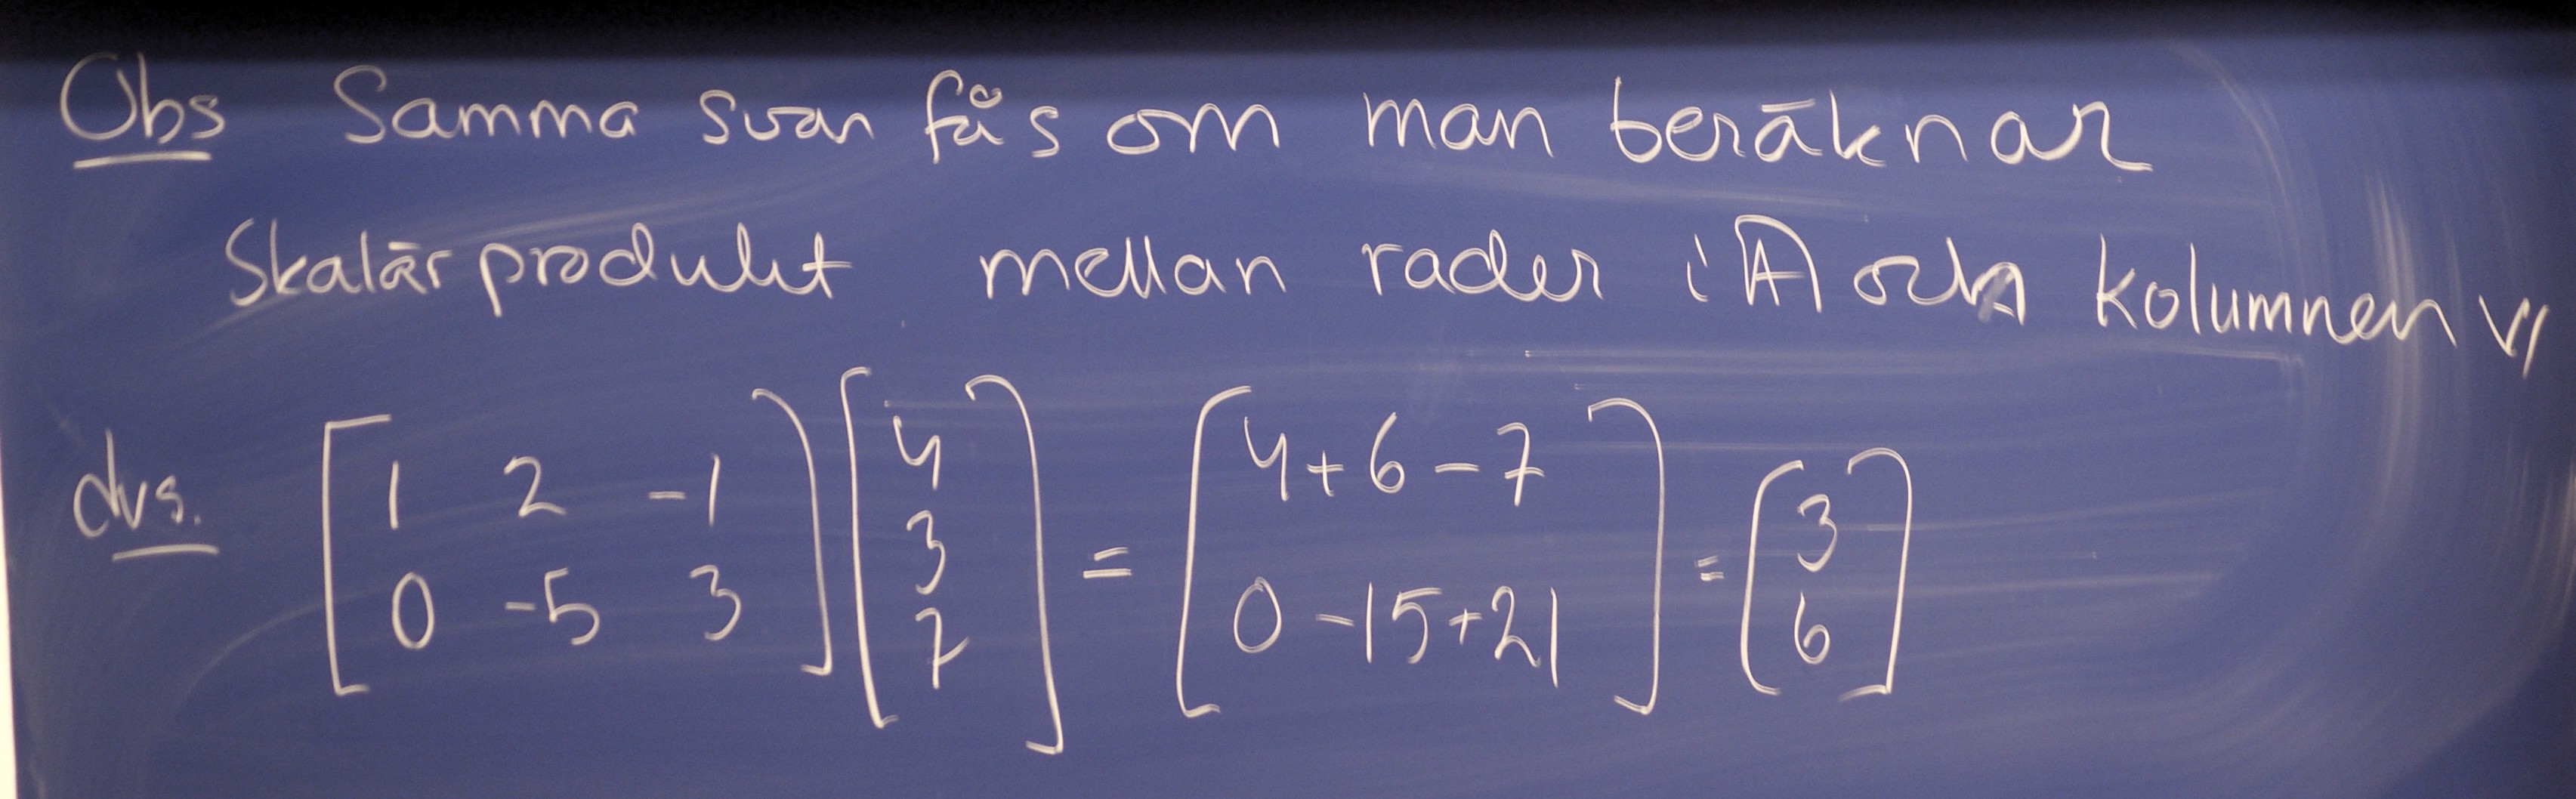 Obs Samma svar fås om man beräknar
Skalärprodukt mellan rader i A och kolumnen v
dvs. [1 2 -1; 0 -5 3] [4; 3; 7] = [4+6-7; 0-15+21] = [3; 6]